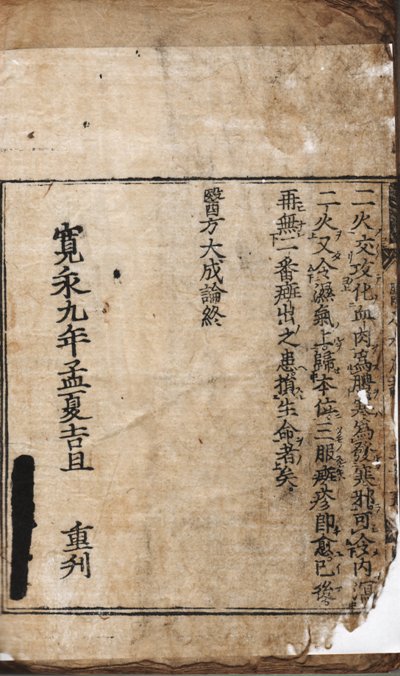 二火交攻化血肉爲膿是爲發寒邪可冷内
二火又令濕氣上歸本位三服斑疹即愈已後
再無二番斑出之患損生命者矣
醫方大成論終
寛永九年孟夏吉旦　重刋